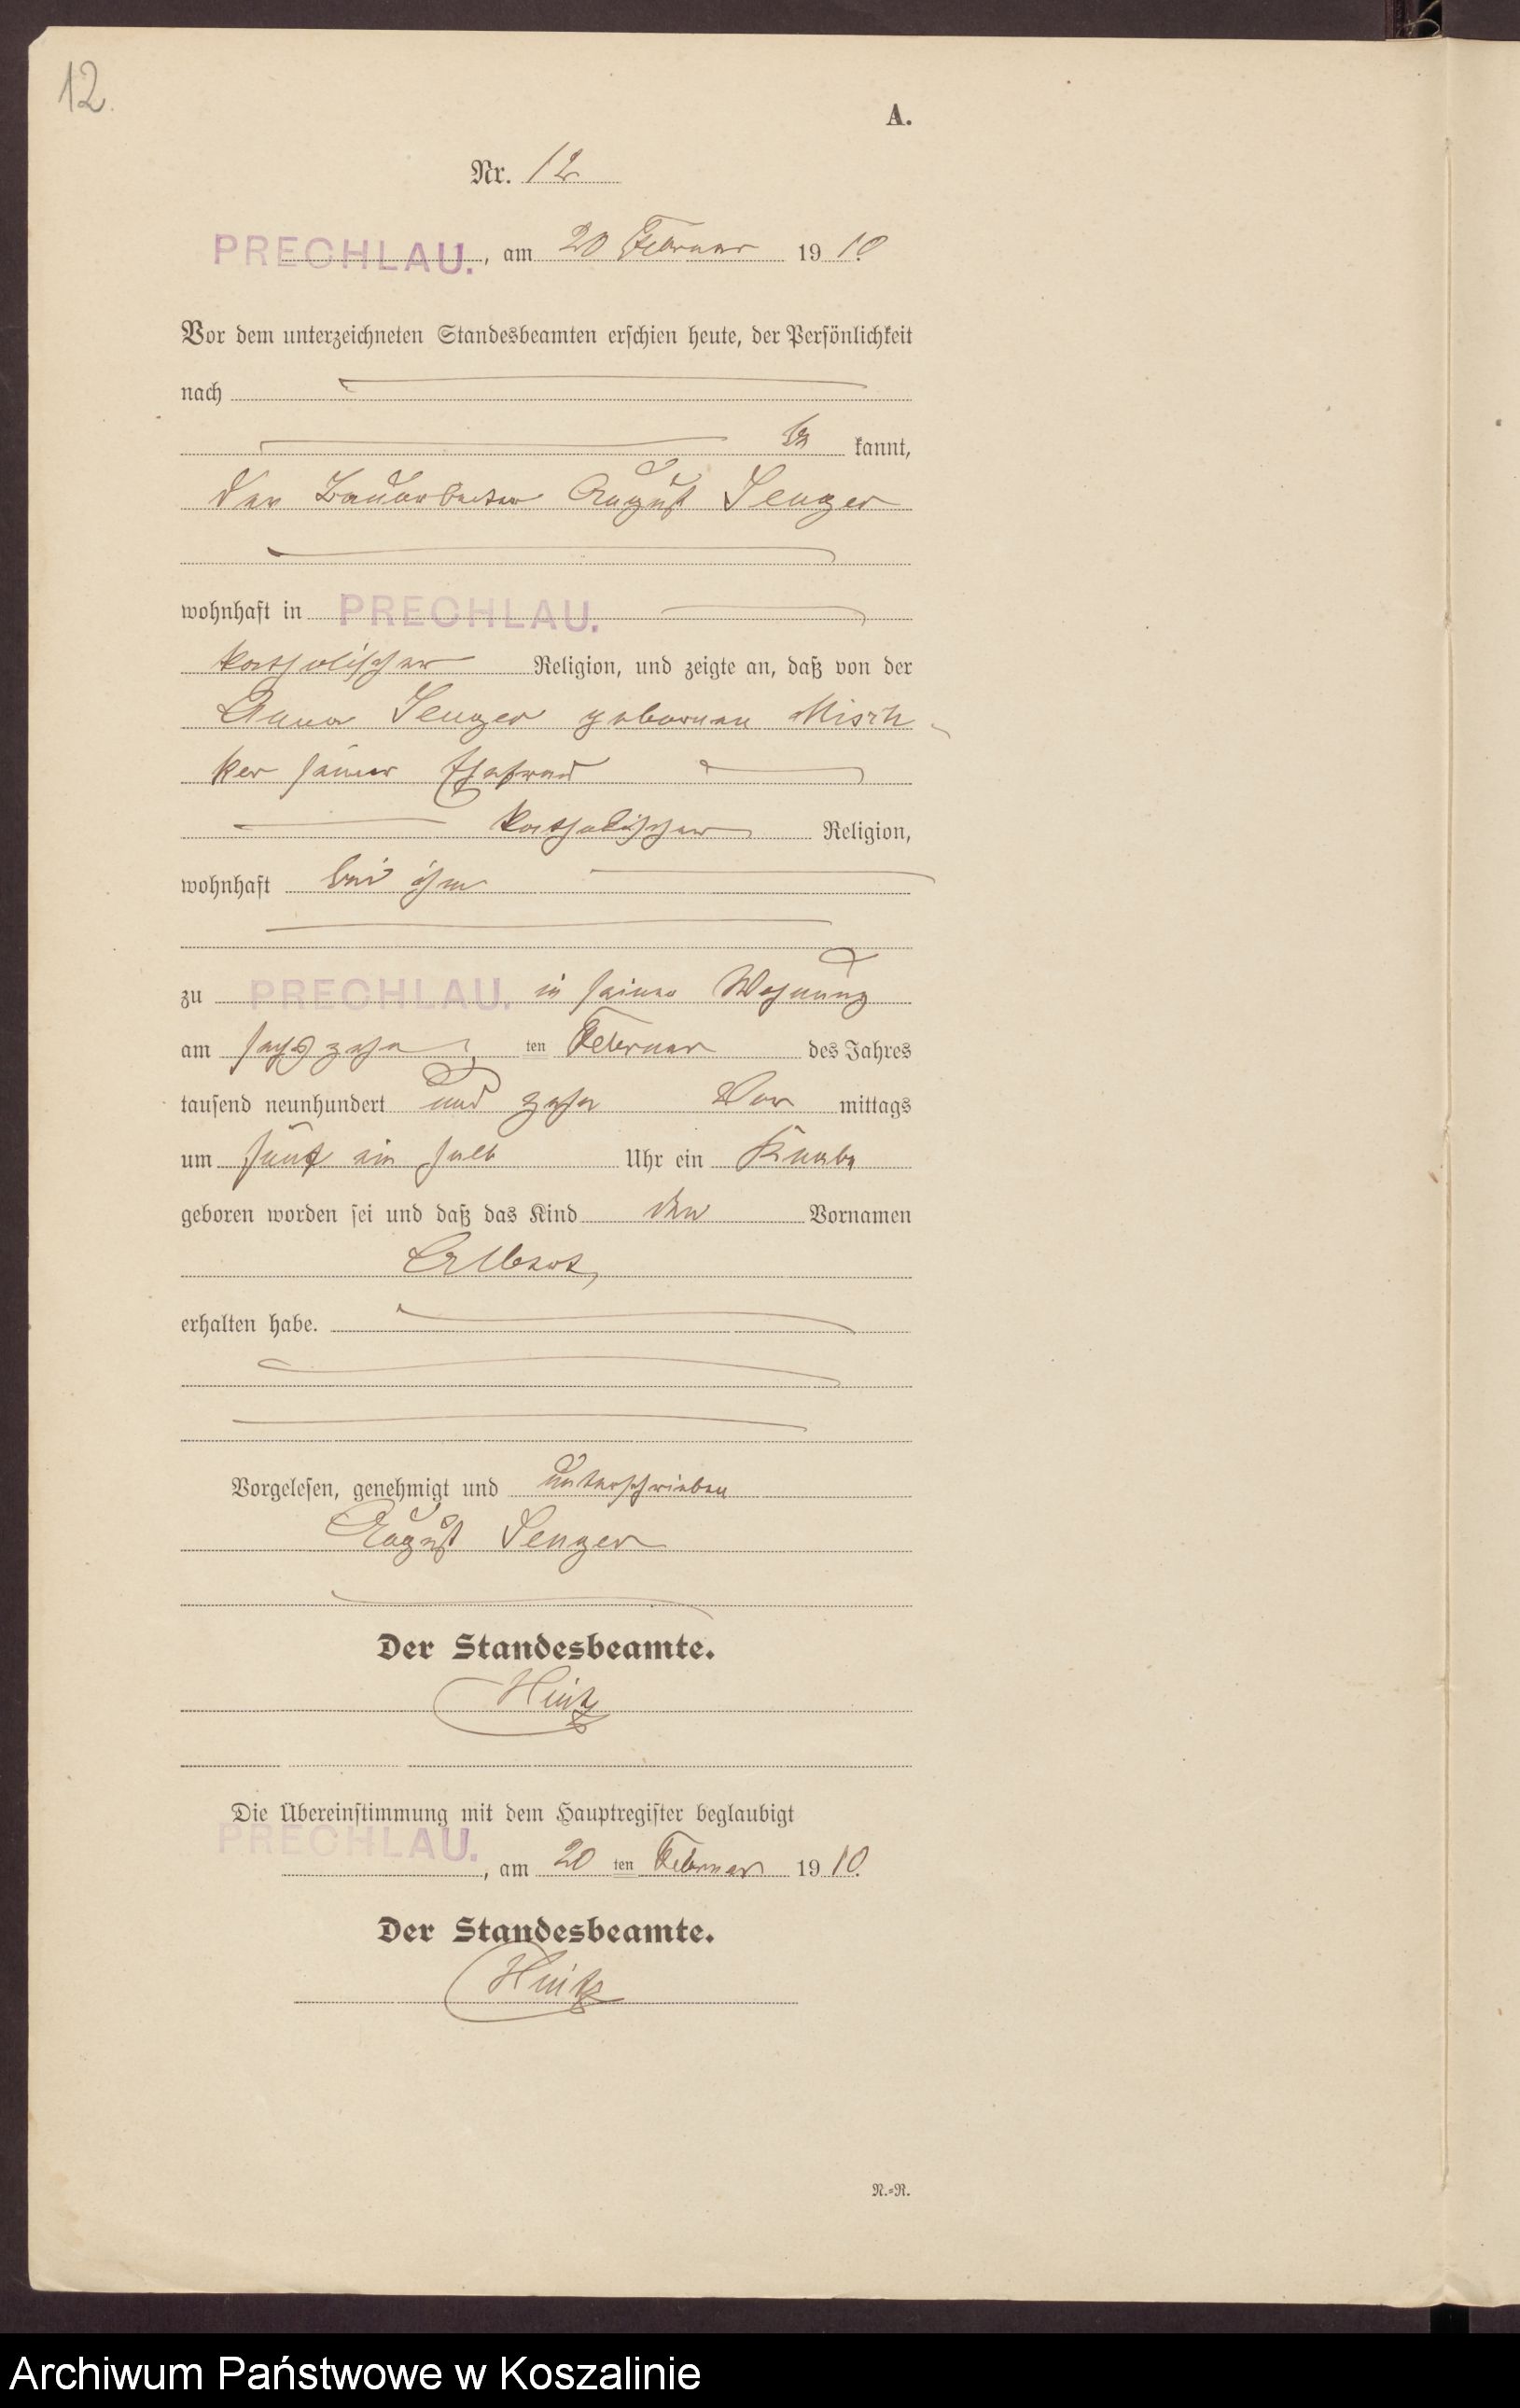 12.
A.
Nr. 12
PRECHLAU., am 20 Februar 1910.
Vor dem unterzeichneten Standesbeamten erschien heute, der Persönlichkeit
nach
be kannt,
der Bauarbeiter August Senger
wohnhaft in PRECHLAU.
katholischer Religion, und zeigte an, daß von der
Anna Senger geborenen Misch-
ker seiner Ehefrau
katholischer Religion,
wohnhaft bei ihm
zu PRECHLAU. in seiner Wohnung
am sechszehn ten Februar des Jahres
tausend neunhundert und zehn Vor mittags
um fünf ein halb Uhr ein Knabe
geboren worden sei und daß das Kind den Vornamen
erhalten habe.
Vorgelesen, genehmigt und unterschrieben
August Senger
Der Standesbeamte.
Hintz
Die Übereinstimmung mit dem Hauptregister beglaubigt
PRECHLAU., am 20 ten Februar 1910.
Der Standesbeamte.
Hintz
N.=R.
Archiwum Państwowe w Koszalinie